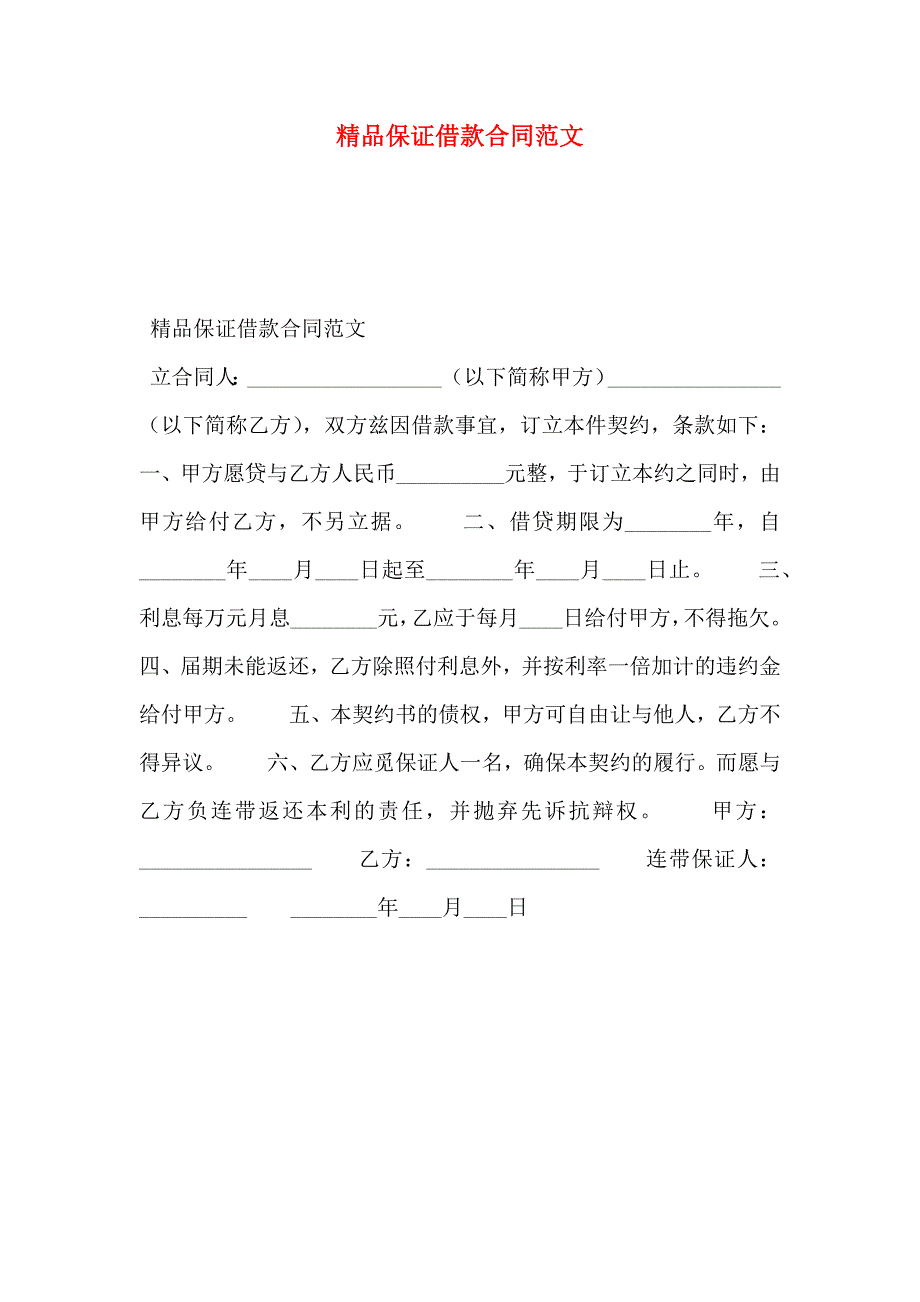 精品保证借款合同范文
精品保证借款合同范文
立合同人：__________________（以下简称甲方）________________
（以下简称乙方），双方兹因借款事宜，订立本件契约，条款如下：
一、甲方愿贷与乙方人民币__________元整，于订立本约之同时，由
甲方给付乙方，不另立据。　　二、借贷期限为________年，自
________年____月____日起至________年____月____日止。　　三、
利息每万元月息________元，乙应于每月____日给付甲方，不得拖欠。
四、届期未能返还，乙方除照付利息外，并按利率一倍加计的违约金
给付甲方。　　五、本契约书的债权，甲方可自由让与他人，乙方不
得异议。　　六、乙方应觅保证人一名，确保本契约的履行。而愿与
乙方负连带返还本利的责任，并抛弃先诉抗辩权。　　甲方：
________________　　乙方：________________　　连带保证人：
__________　　________年____月____日